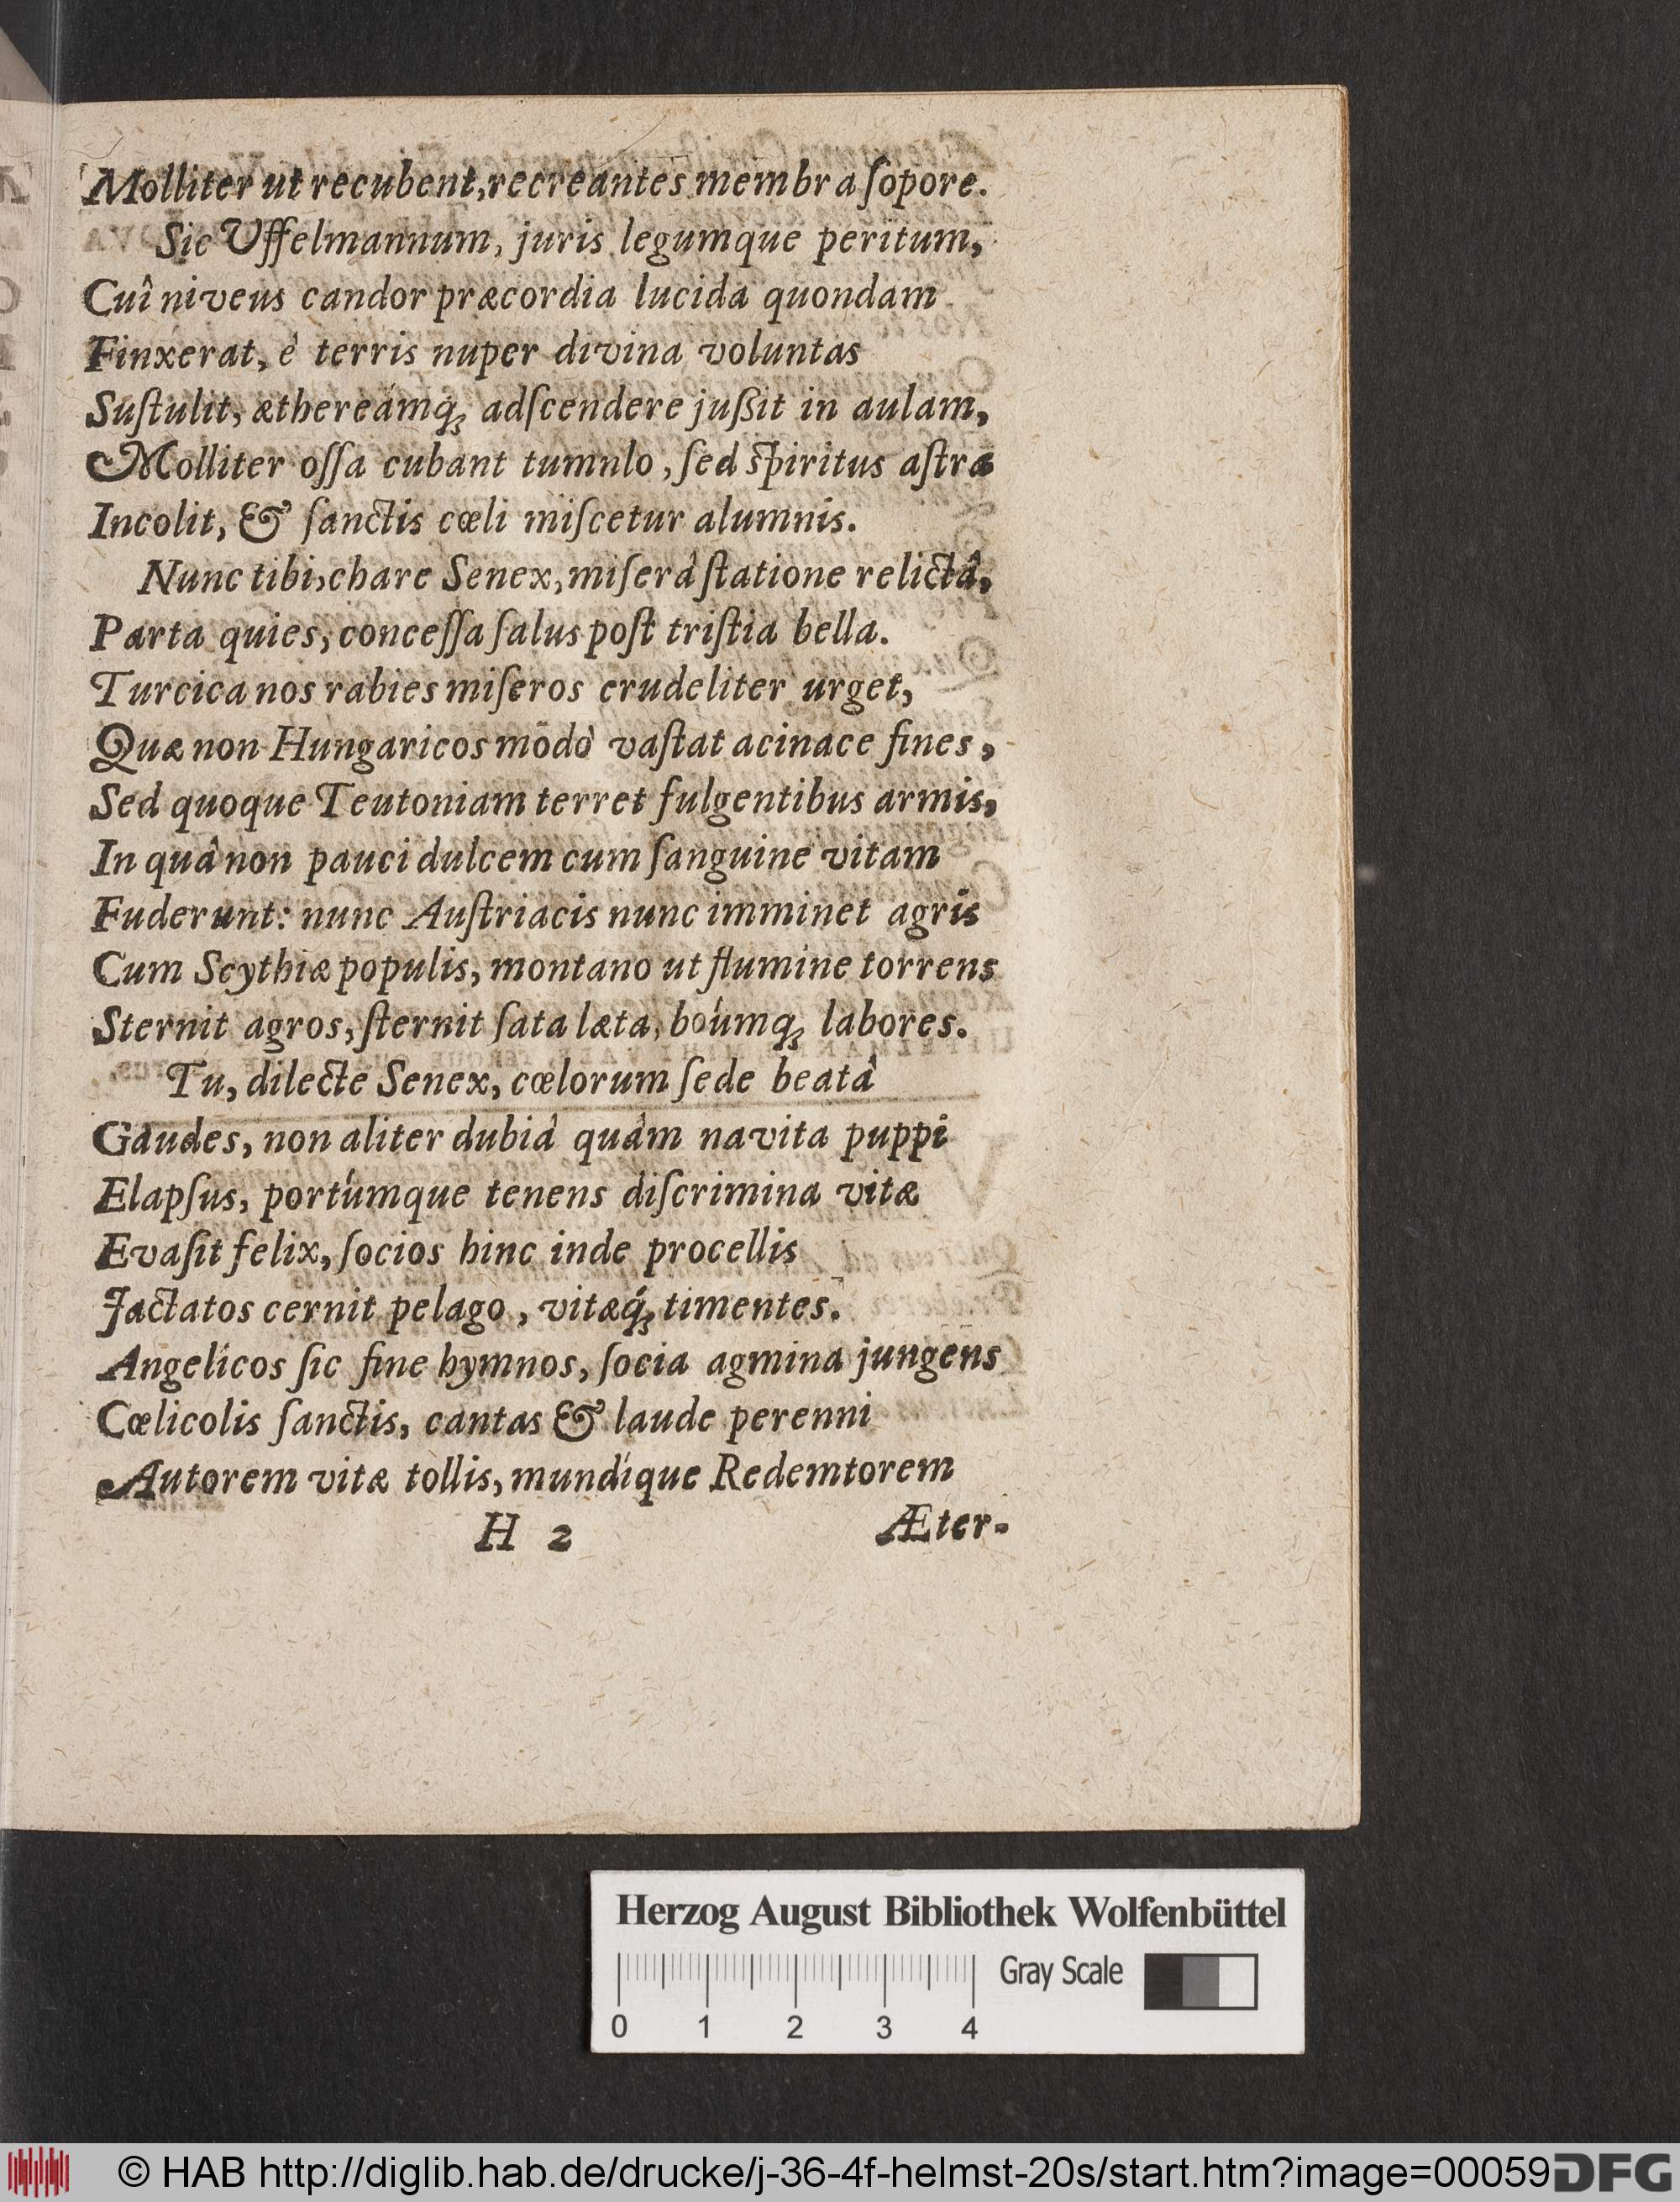 Molliter ut recubent, recreantes membra ſopore.
Sic Uffelmannum, juris legumque peritum,
Cuî niveus candor præcordia lucida quondam
Finxerat, è terris nuper divina voluntas
Suſtulit, æthereámq́ꝫ adſcendere juſsit in aulam,
Molliter oſſa cubant tumulo, ſed ſpiritus aſtra
Incolit, & ſanctis cœli miſcetur alumnis.
Nunc tibi, chare Senex, miſerâ ſtatione relictâ,
Parta quies, conceſſa ſalus poſt triſtia bella.
Turcica nos rabies miſeros crudeliter urget,
Quæ non Hungaricos mōdò vaſtat acinace fines,
Sed quoque Teutoniam terret fulgentibus armis,
In quâ non pauci dulcem cum ſanguine vitam
Fuderunt: nunc Auſtriacis nunc imminet agris
Cum Scythiæ populis, montano ut flumine torrens
Sternit agros, ſternit ſata læta, boúmqꝫ labores.
Tu, dilecte Senex, cœlorum ſede beatâ
Gaudes, non aliter dubiâ quâm navita puppi
Elapſus, portúmque tenens diſcrimina vitæ
Evaſit felix, ſocios hinc inde procellis
Jactatos cernit pelago, vitæq́ꝫ timentes.
Angelicos ſic ſine hymnos, ſocia agmina jungens
Cœlicolis ſanctis, cantas & laude perenni
Autorem vitæ tollis, mundíque Redemtorem
H 2 Æter-
Herzog August Bibliothek Wolfenbüttel
Gray Scale
0 1 2 3 4
© HAB http://diglib.hab.de/drucke/j-36-4f-helmst-20s/start.htm?image=00059
DFG